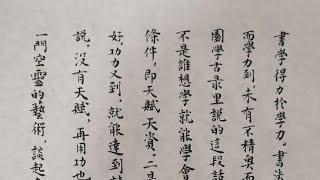 書學得力於學力。書法
而學力到，未有不精奥而
園學古录里説的這段話
不是誰想學就能學會
條件，即天賦天資；二是
好，功力又到，就能達到
説，没有天賦，再用功也
一門空靈的藝術，談起